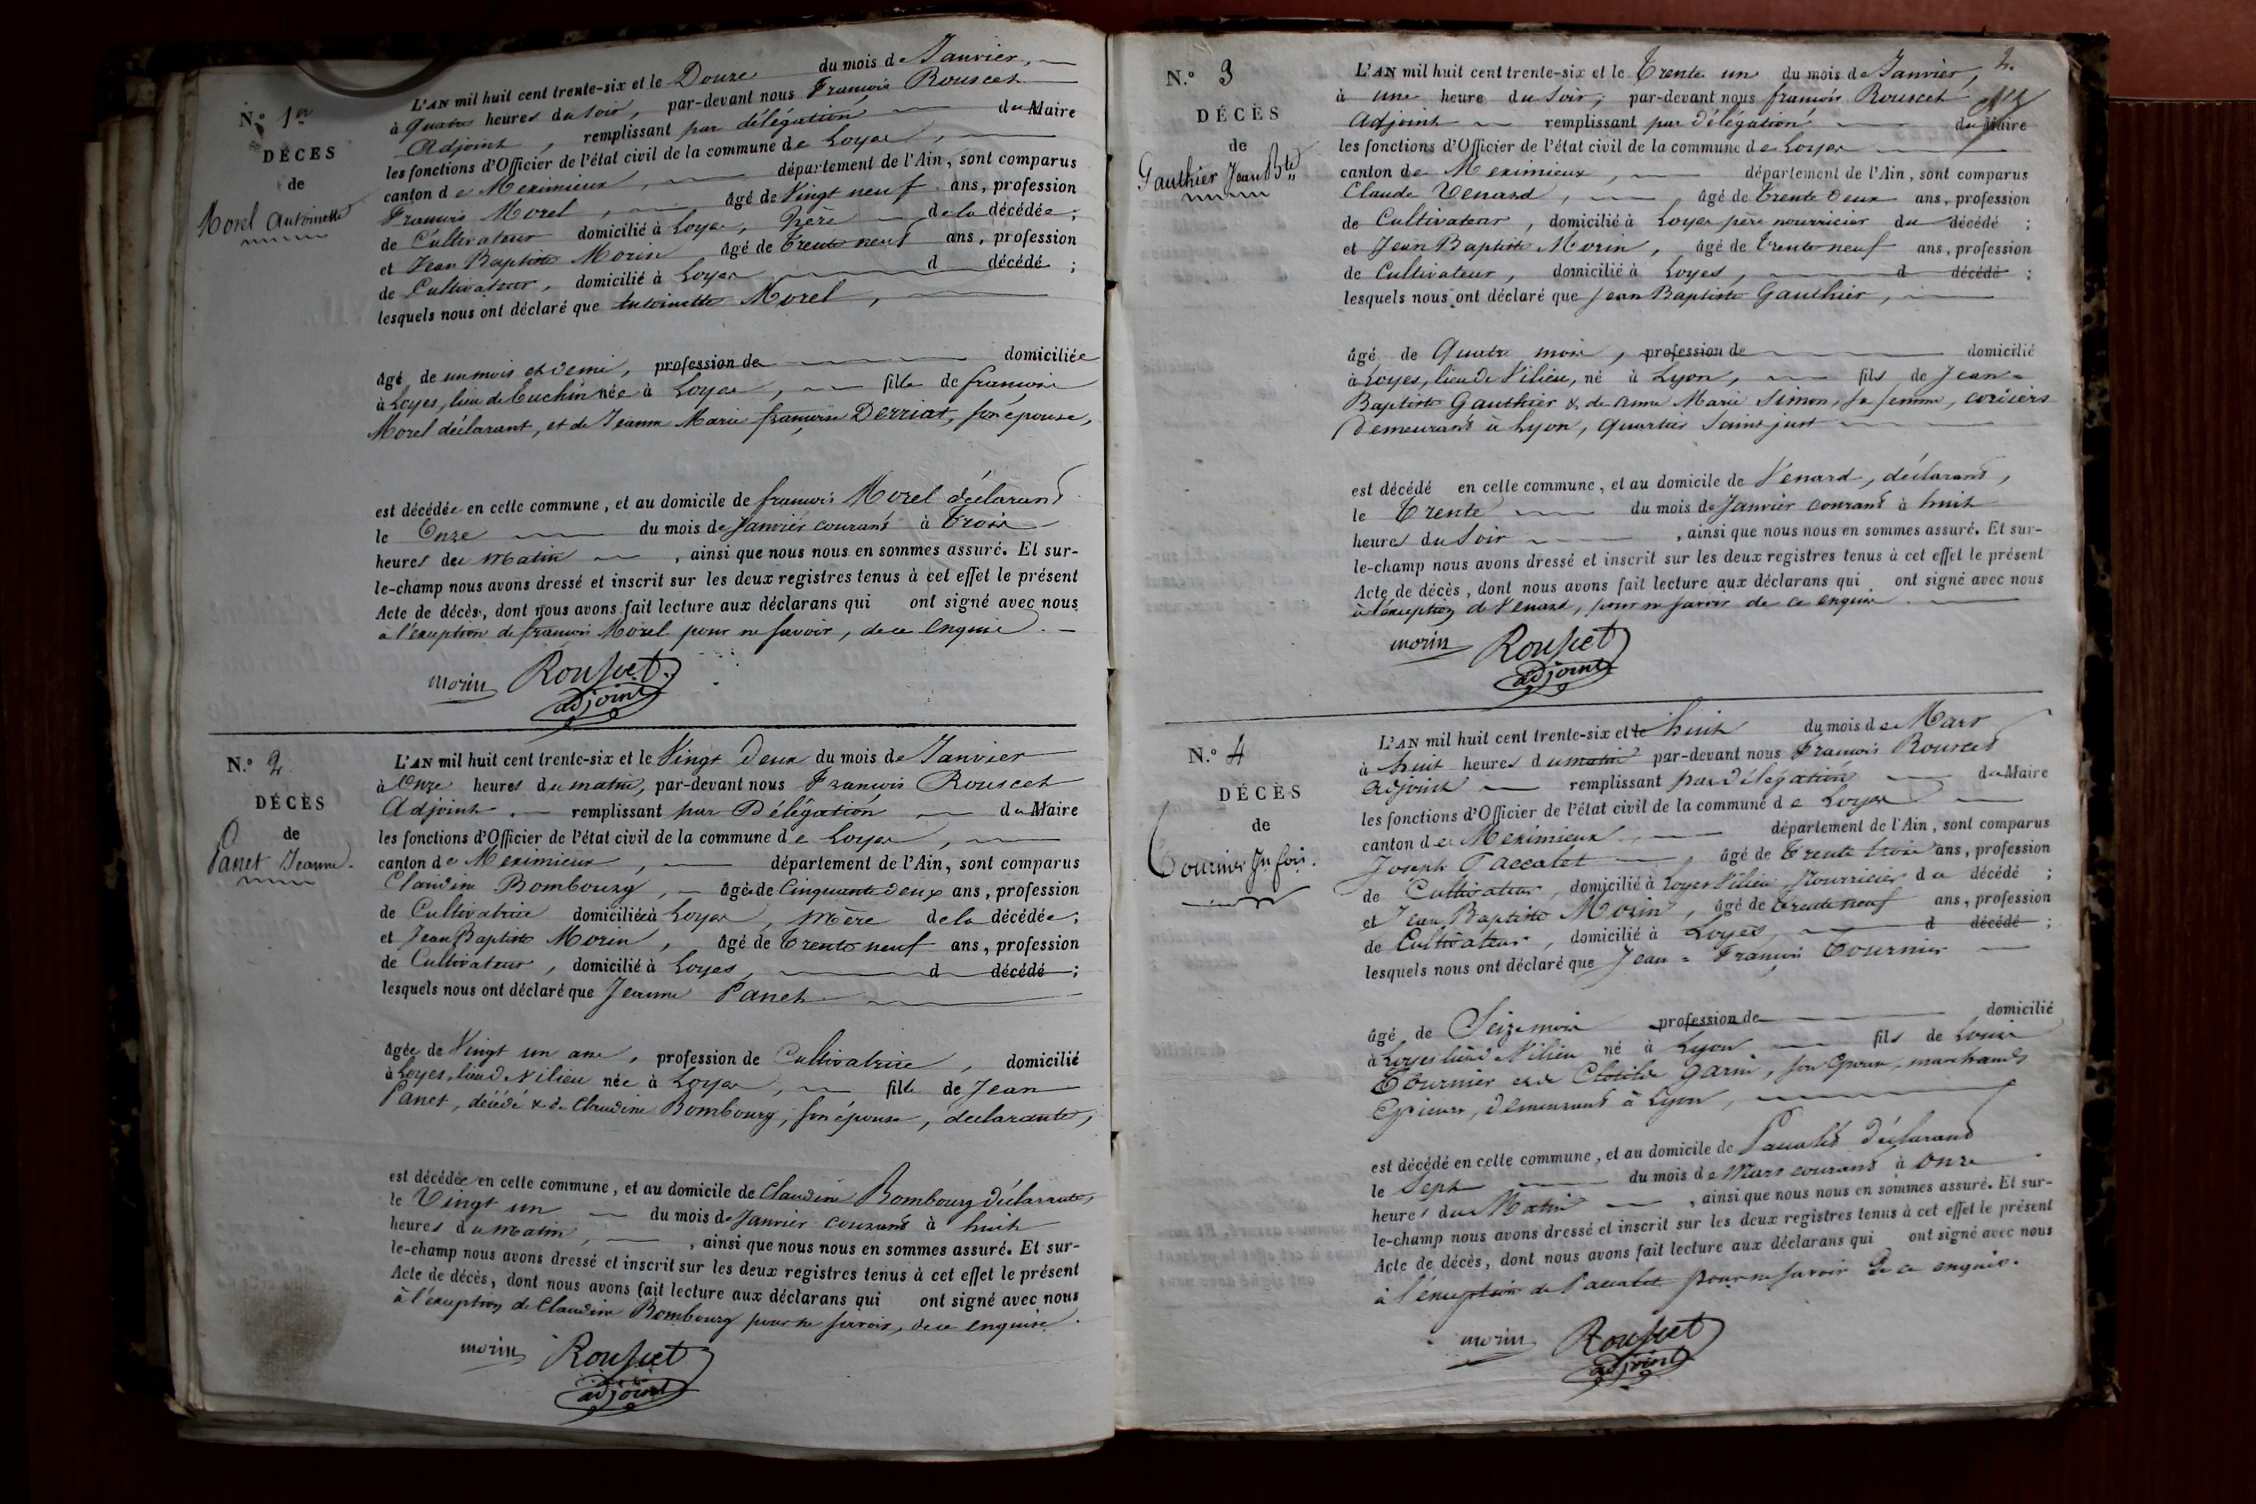 N.º 1er
DÉCÈS
de
Morel Antoinette
L'AN mil huit cent trente-six et le Douze du mois de Janvier,
à quatre heures du soir, par-devant nous François Rousset
Adjoint, remplissant par délégation du Maire
les fonctions d'Officier de l'état civil de la commune de Loyes,
canton de Meximieux, département de l'Ain, sont comparus
François Morel, âgé de Vingt neuf ans, profession
de Cultivateur domicilié à Loyes, Père de la décédée;
et Jean Baptiste Morin âgé de trente neuf ans, profession
de Cultivateur, domicilié à Loyes d décédé;
lesquels nous ont déclaré que Antoinette Morel,
âgé de un mois et demi, profession de domiciliée
à Loyes, lieu de Cuchin née à Loyes, fille de françois
Morel déclarant, et de Jeanne Marie françoise Derriat, son épouse,
est décédée en cette commune, et au domicile de françois Morel déclarant
le Onze du mois de Janvier courant à trois
heures du matin, ainsi que nous nous en sommes assuré. Et sur-
le-champ nous avons dressé et inscrit sur les deux registres tenus à cet effet le présent
Acte de décès, dont nous avons fait lecture aux déclarans qui ont signé avec nous
à l'exeption de françois Morel pour ne savoir, de ce enquis.
morin Rousset
adjoint
N.º 2
DÉCÈS
de
Panet Jeanne.
L'AN mil huit cent trente-six et le Vingt Deux du mois de Janvier
à Onze heures du matin, par-devant nous François Rousset
Adjoint remplissant par Délégation du Maire
les fonctions d'Officier de l'état civil de la commune de Loyes,
canton de Meximieux, département de l'Ain, sont comparus
Claudine Bombourg, âgée de Cinquante deux ans, profession
de Cultivatrice domiciliée à Loyes, mère de la décédée;
et Jean Baptiste Morin, âgé de trente neuf ans, profession
de Cultivateur, domicilié à Loyes, d décédé;
lesquels nous ont déclaré que Jeanne Panet
âgée de Vingt un ans, profession de Cultivatrice, domicilié
à Loyes, lieu d Vilieu née à Loyes, fille de Jean
Panet, décédé & de Claudine Bombourg, son épouse, déclarante,
est décédée en cette commune, et au domicile de Claudine Bombourg déclarante,
le Vingt un du mois de Janvier courant à huit
heures du matin, ainsi que nous nous en sommes assuré. Et sur-
le-champ nous avons dressé et inscrit sur les deux registres tenus à cet effet le présent
Acte de décès, dont nous avons fait lecture aux déclarans qui ont signé avec nous
à l'exeption de Claudine Bombourg pour ne savoir, de ce enquise.
morin Rousset
adjoint
2.
N.º 3
DÉCÈS
de
Gauthier Jean Bte
L'AN mil huit cent trente-six et le trente un du mois de Janvier,
à une heure du soir, par-devant nous françois Rousset
Adjoint remplissant par délégation du Maire
les fonctions d'Officier de l'état civil de la commune de Loyes
canton de Meximieux, département de l'Ain, sont comparus
Claude Venard, âgé de trente deux ans, profession
de Cultivateur, domicilié à Loyes père nourricier du décédé;
et Jean Baptiste Morin, âgé de trente neuf ans, profession
de Cultivateur, domicilié à Loyes, d décédé;
lesquels nous ont déclaré que Jean Baptiste Gauthier,
âgé de Quatre mois, profession de domicilié
à Loyes, lieu de Vilieu, né à Lyon, fils de Jean-
Baptiste Gauthier & de Anne Marie Simon, sa femme,
Demeurant à Lyon, quartier Saint just
est décédé en cette commune, et au domicile de Venard, déclarant,
le trente du mois de Janvier courant à huit
heures du soir, ainsi que nous nous en sommes assuré. Et sur-
le-champ nous avons dressé et inscrit sur les deux registres tenus à cet effet le présent
Acte de décès, dont nous avons fait lecture aux déclarans qui ont signé avec nous
à l'exeption de Venard, pour ne savoir de ce enquis
morin Rousset
adjoint
N.º 4
DÉCÈS
de
Tournier Jn fois.
L'AN mil huit cent trente-six et le huit du mois de Mars
à huit heures du matin par-devant nous François Rousset
Adjoint remplissant par Délégation du Maire
les fonctions d'Officier de l'état civil de la commune de Loyes
canton de Meximieux, département de l'Ain, sont comparus
Joseph Paccalet, âgé de trente trois ans, profession
de Cultivateur, domicilié à Loyes Vilieu Nourricier du décédé;
et Jean Baptiste Morin, âgé de trente neuf ans, profession
de Cultivateur, domicilié à Loyes d décédé;
lesquels nous ont déclaré que Jean-François Tournier
âgé de Seize mois profession de domicilié
à Loyes lieu d Vilieu né à Lyon fils de Louis
Tournier et de Clotilde Garin, son épouse, marchands
Epiciers, demeurant à Lyon,
est décédé en cette commune, et au domicile de Paccalet déclarant
le Sept du mois de Mars courant à Onze
heures du Matin, ainsi que nous nous en sommes assuré. Et sur-
le-champ nous avons dressé et inscrit sur les deux registres tenus à cet effet le présent
Acte de décès, dont nous avons fait lecture aux déclarans qui ont signé avec nous
à l'exeption de Paccalet pour ne savoir de ce enquis.
morin Rousset
adjoint